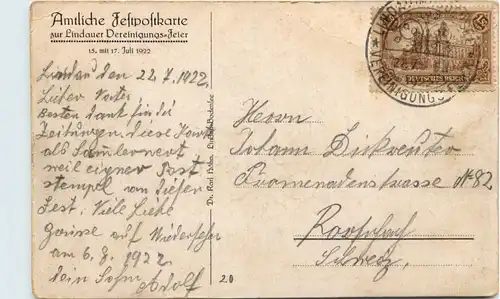 Amtliche Festpostkarte
zur Lindauer Vereinigungs-Feier
15. mit 17. Juli 1922
Lindau den 22.7.1922.
Lieber Vater
Besten Dank für die
Zeitungen. Diese Karte
als Sammlerwert
weil eigner Post
stempel von dieser
Fest. Viele Liebe
Grüsse auf Wiedersehen
am 6.8.1922
dein Sohn Adolf
Dr. Karl Höhn, Lindau-Bodensee
20
Herrn
Johann
Promenadenstrasse № 82
Rorschach
Schweiz,
LINDAU
VEREINIGUNGS
DEUTSCHES REICH